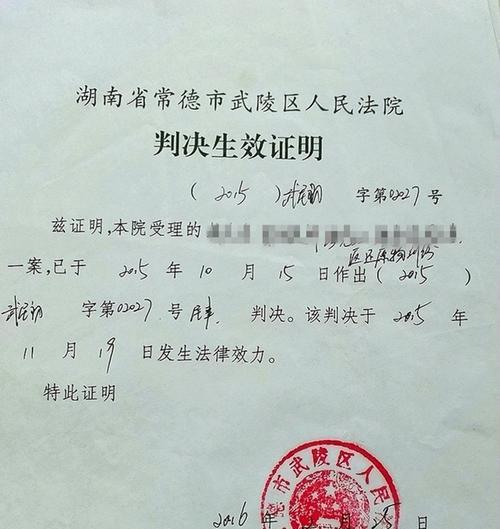 湖南省常德市武陵区人民法院
判决生效证明
( 2015 ) 武民初 字第02027号
兹证明,本院受理的
返还原物纠纷
一案,已于 2015 年 10 月 15 日作出( 2015 )
武民初 字第02027 号 民事 判决。该判决于 2015 年
11 月 19 日发生法律效力。
特此证明
市武陵区人民
2016 年 月 日